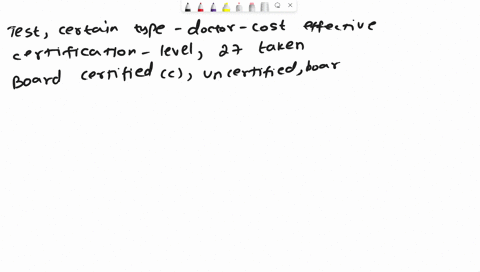 Test, certain type - doctor - cost effective
certification - level, 27 taken
Board certified (c), uncertified, boar